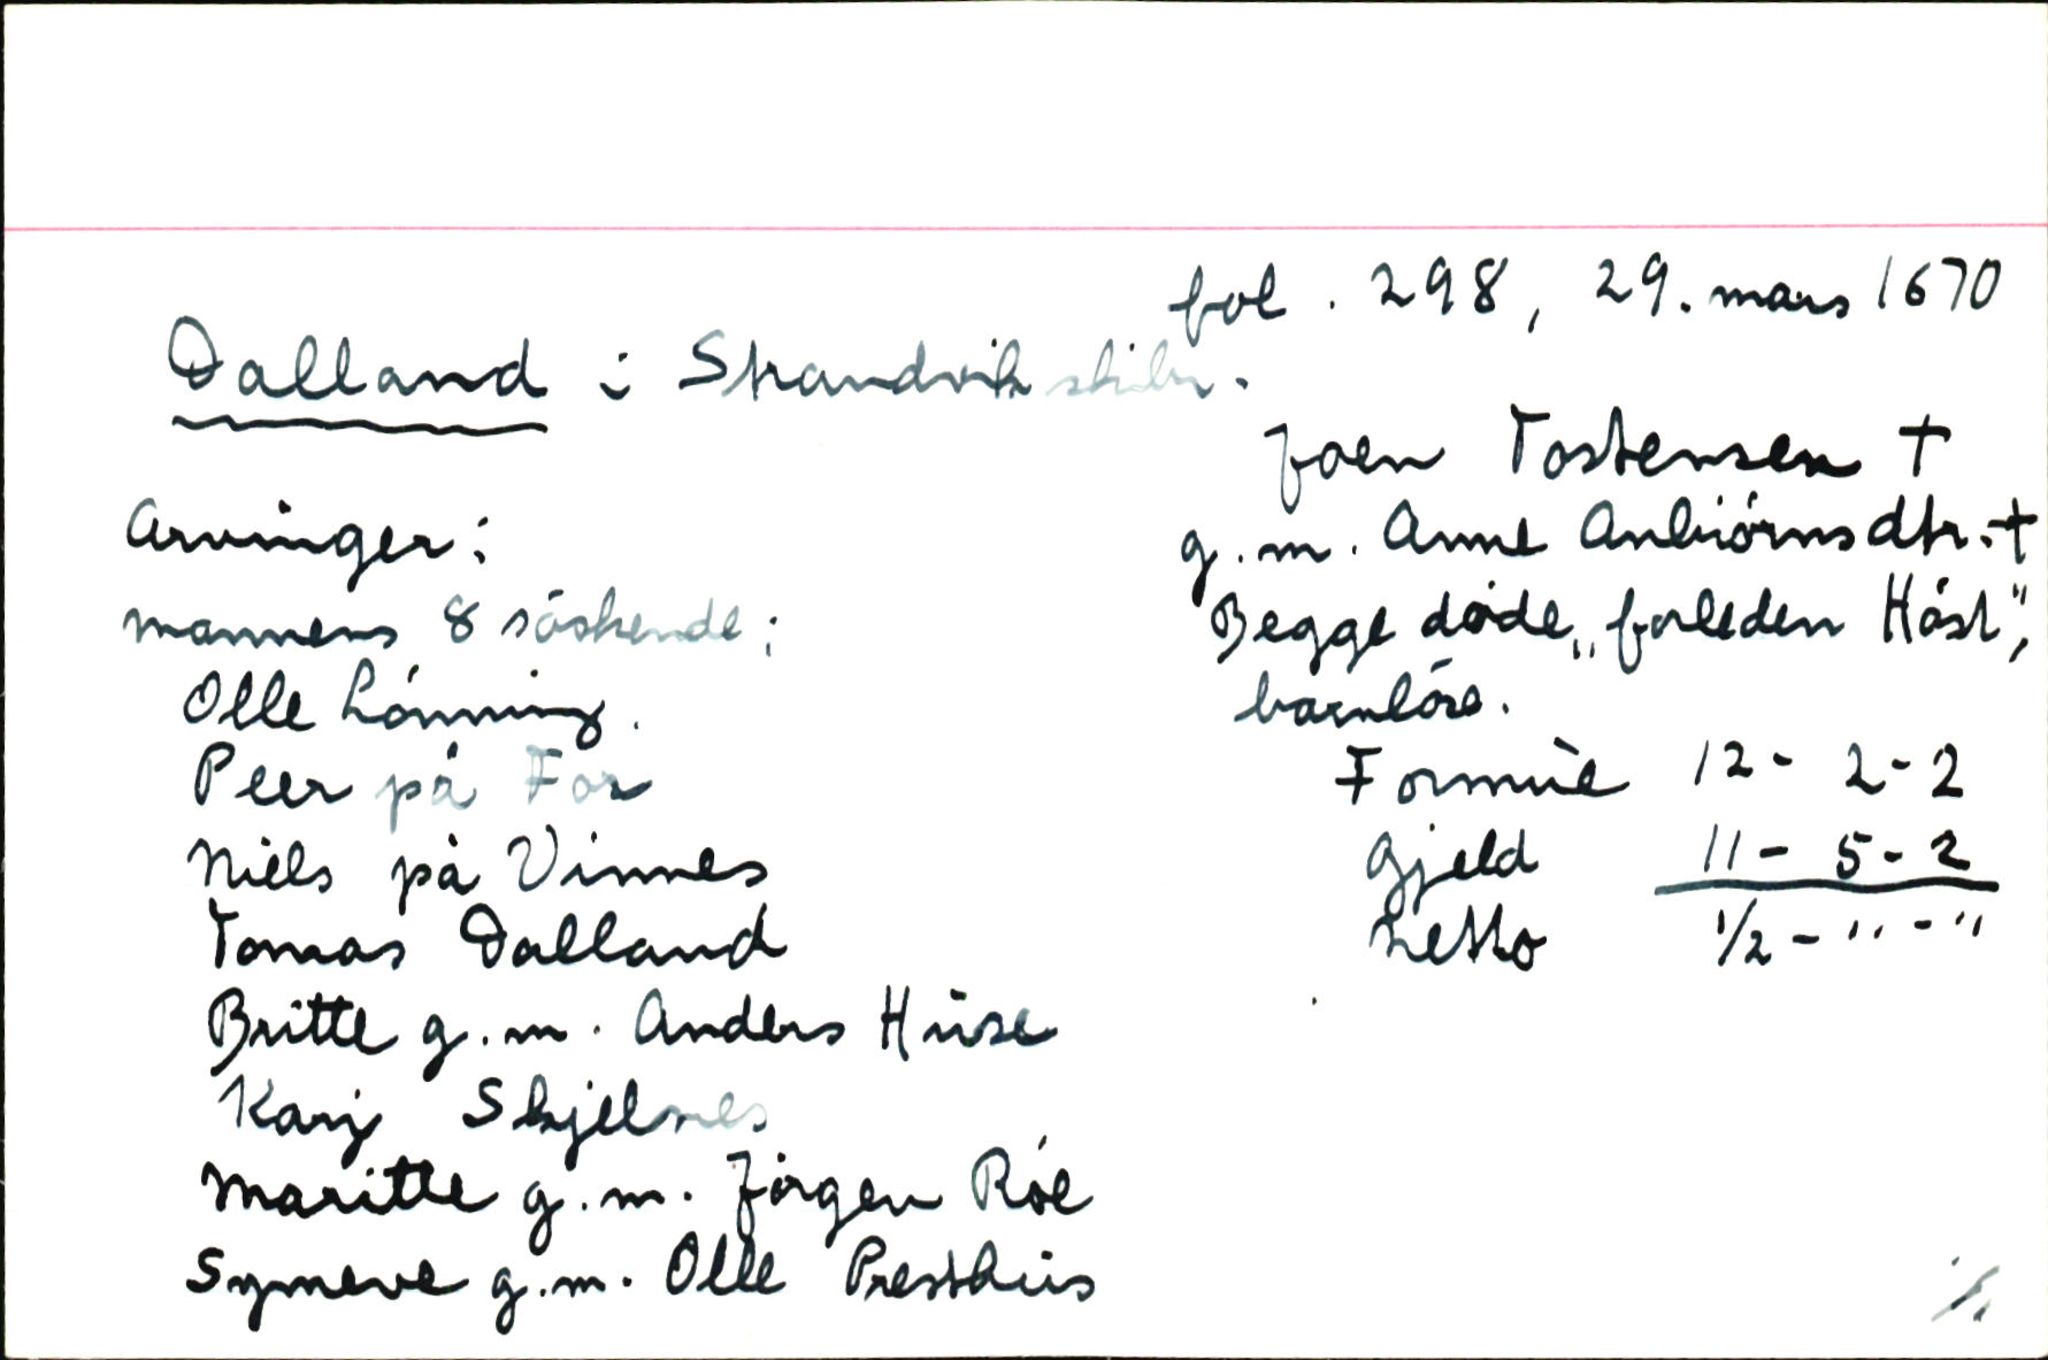 fol. 298, 29. mars 1670
Dalland i Strandvik skibr.
Joen Tostensen †
g.m. Anne Anbiörnsdtr. †
Begge døde „forleden Höst",
barnlöse.
Formüe 12 - 2 - 2
Gjeld 11 - 5 - 2
Netto 1/2 - " - "
Arvinger:
mannens 8 söskende:
Olle Lönning.
Peer på For
Niels på Vinnes
Tomas Dalland
Britte g.m. Anders Hüse
Karj Skjelnes
Maritte g.m. Jörgen Röe
Synneve g.m. Olle Presthüs